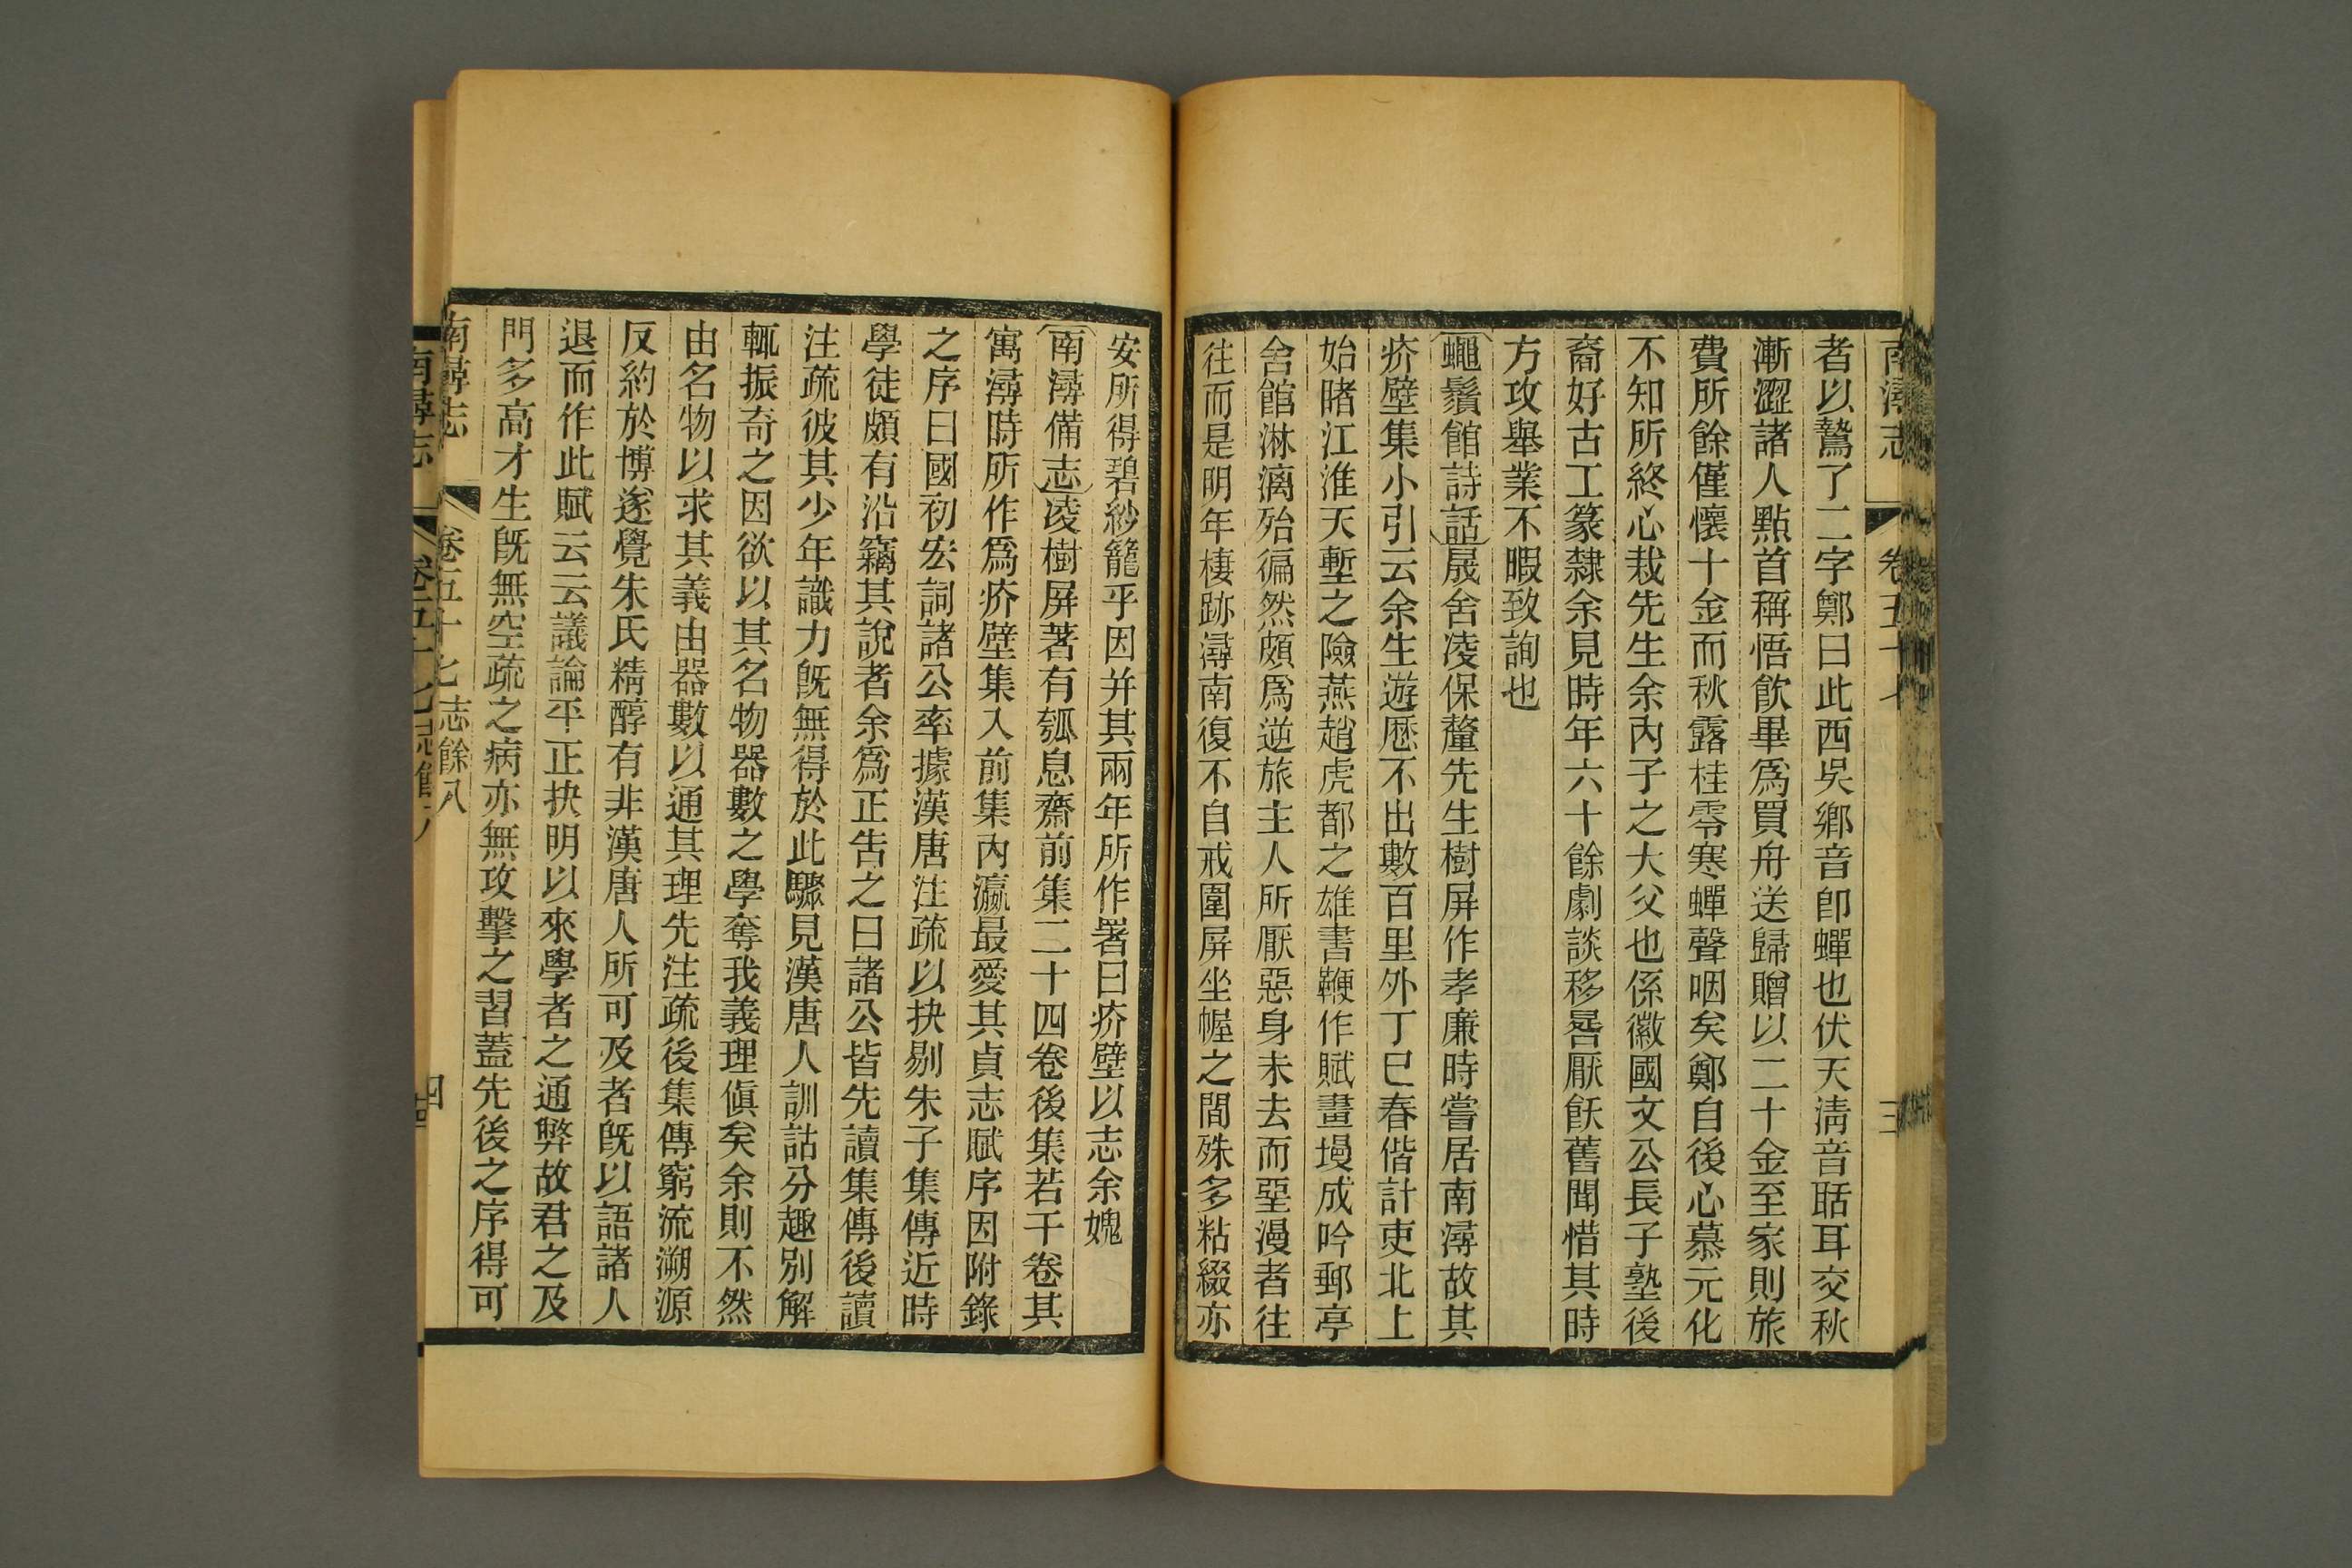 南潯志 卷五十七 三
者以鷙了二字鄭曰此西吳鄉音卽蟬也伏天淸音聒耳交秋
漸澀諸人點首稱悟飮畢爲買舟送歸贈以二十金至家則旅
費所餘僅懷十金而秋露桂零寒蟬聲咽矣鄭自後心慕元化
不知所終心栽先生余內子之大父也係徽國文公長子塾後
裔好古工篆隸余見時年六十餘劇談移晷厭飫舊聞惜其時
方攻舉業不暇致詢也
蠅鬚館詩話晟舍凌保釐先生樹屏作孝廉時嘗居南潯故其
疥壁集小引云余生遊歷不出數百里外丁巳春偕計吏北上
始睹江淮天塹之險燕趙虎都之雄書鞭作賦畫墁成吟郵亭
舍館淋漓殆徧然頗爲逆旅主人所厭惡身未去而堊漫者往
往而是明年棲跡潯南復不自戒圍屏坐幄之間殊多粘綴亦
安所得碧紗籠乎因幷其兩年所作署曰疥壁以志余媿
南潯備志凌樹屏著有瓠息齋前集二十四卷後集若干卷其
寓潯時所作爲疥壁集入前集內瀛最愛其貞志賦序因附錄
之序曰國初宏詞諸公率據漢唐注疏以抉剔朱子集傳近時
學徒頗有沿竊其說者余爲正告之曰諸公皆先讀集傳後讀
注疏彼其少年識力旣無得於此驟見漢唐人訓詁分趣別解
輒振奇之因欲以其名物器數之學奪我義理傎矣余則不然
由名物以求其義由器數以通其理先注疏後集傳窮流溯源
反約於博遂覺朱氏精醇有非漢唐人所可及者旣以語諸人
退而作此賦云云議論平正抉明以來學者之通弊故君之及
門多高才生旣無空疏之病亦無攻擊之習蓋先後之序得可
南潯志 卷五十七 志餘八 四